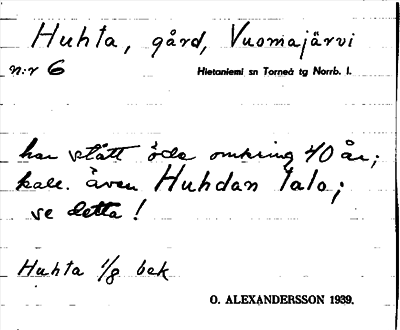 Huhta, gård, Vuomajärvi
n:r 6 Hietaniemi sn Torneå tg Norrb. l.
har stått öde omkring 40 år;
kall. även Huhdan talo;
se detta!
Huhta 1/8 bek
O. ALEXANDERSSON 1939.